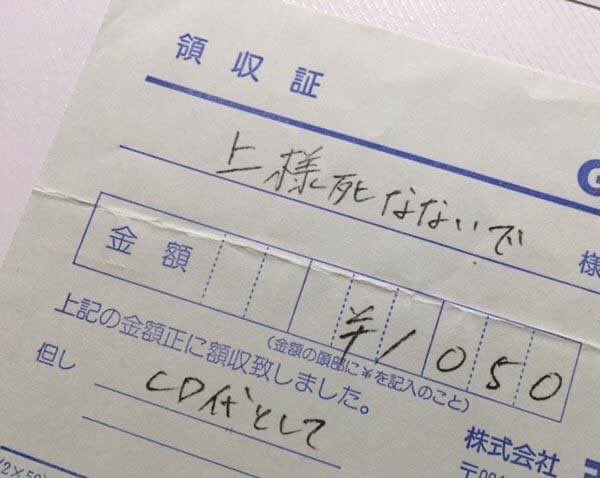 領収証
上様死なないで 様
金額 ¥1050
(金額の頭部に¥を記入のこと)
上記の金額正に領収致しました。
但し CD代として
株式会社